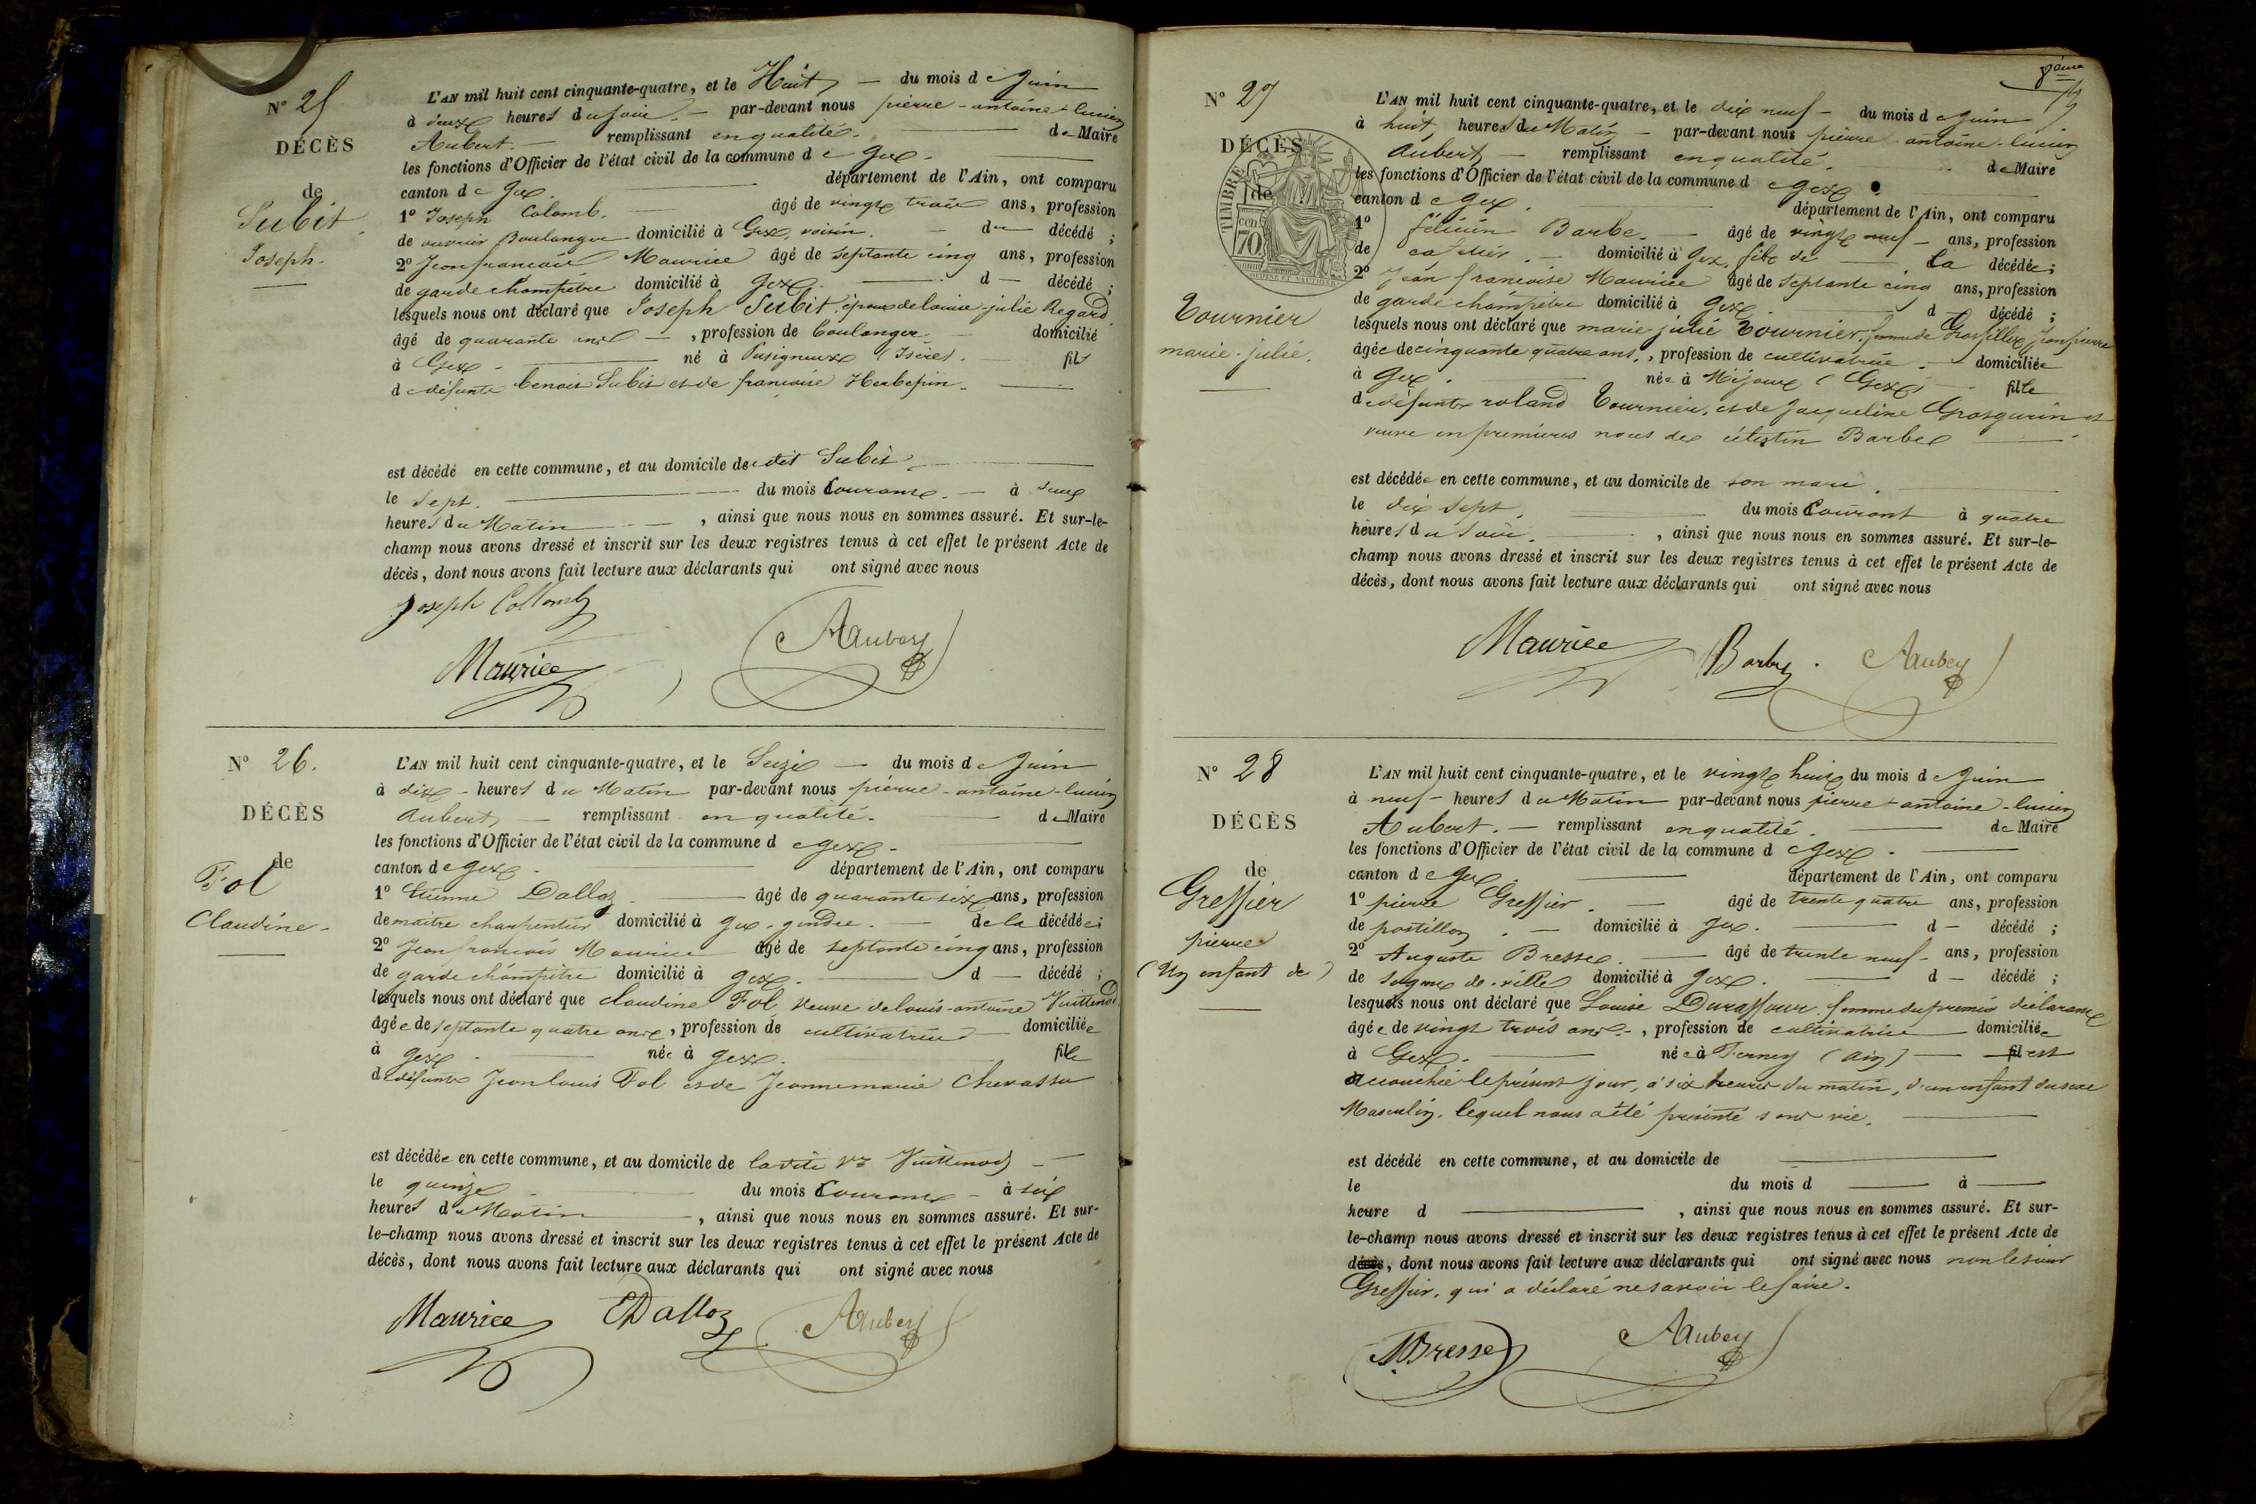 N° 25
DÉCÈS
de
Subit
Joseph.
L'AN mil huit cent cinquante-quatre, et le Huit du mois de Juin
à deux heures du soir par-devant nous pierre-antoine-lucien
Aubert remplissant en qualité de Maire
les fonctions d'Officier de l'état civil de la commune de Gex
canton de Gex. département de l'Ain, ont comparu
1° Joseph Colomb. âgé de vingt trois ans, profession
de ouvrier Boulanger domicilié à Gex, voisin. du décédé;
2° Jean françois Maurice âgé de septante cinq ans, profession
de garde champêtre domicilié à Gex. d décédé;
lesquels nous ont déclaré que Joseph Subit époux de louise-julie Regard
âgé de quarante ans, profession de boulanger domicilié
à Gex. né à Pusigneux (Isère). fils
de défunts benoit Subit et de françoise Herbepin.
est décédé en cette commune, et au domicile de dit Subit
le sept. du mois Courant. à deux
heures du Matin, ainsi que nous nous en sommes assuré. Et sur-le-
champ nous avons dressé et inscrit sur les deux registres tenus à cet effet le présent Acte de
décès, dont nous avons fait lecture aux déclarants qui ont signé avec nous
Joseph Collomb
Maurice
AAubert
N° 26.
DÉCÈS
de
Fol
Claudine.
L'AN mil huit cent cinquante-quatre, et le Seize du mois de Juin
à dix heures du Matin par-devant nous pierre-antoine-lucien
Aubert remplissant en qualité. de Maire
les fonctions d'Officier de l'état civil de la commune d e Gex.
canton de Gex. département de l'Ain, ont comparu
1° Etienne Dalloz âgé de quarante six ans, profession
de maitre charpentier domicilié à Gex. gendre. de la décédée;
2° Jean françois Maurice âgé de septante cinq ans, profession
de garde champêtre domicilié à Gex. d décédé;
lesquels nous ont déclaré que claudine Fol, veuve de louis-antoine Vuittenod
âgée de septante quatre ans, profession de cultivatrice domiciliée
à Gex. née à Gex. fille
de défunts Jean louis Fol et de Jeanne marie Chevassu
est décédée en cette commune, et au domicile de la dite Ve Vuittenod
le quinze du mois Courant à six
heures du Matin, ainsi que nous nous en sommes assuré. Et sur-
le-champ nous avons dressé et inscrit sur les deux registres tenus à cet effet le présent Acte de
décès, dont nous avons fait lecture aux déclarants qui ont signé avec nous
Maurice EDalloz AAubert
8ème
N° 27
DÉCÈS
de
TIMBRE
cen
70
Tournier
marie-julie.
L'AN mil huit cent cinquante-quatre, et le dix neuf du mois de Juin
à huit heures du Matin par-devant nous pierre-antoine-lucien
Aubert remplissant en qualité. de Maire
les fonctions d'Officier de l'état civil de la commune d e Gex.
canton de Gex. département de l'Ain, ont comparu
1° félicien Barbe. âgé de vingt neuf ans, profession
de cafetier. domicilié à Gex, fils de la décédée;
2° Jean françoise Maurice âgé de septante cinq ans, profession
de garde champêtre domicilié à Gex. d décédé;
lesquels nous ont déclaré que marie-julie Tournier, femme de Grosfillex Jean pierre
âgée de cinquante quatre ans, profession de cultivatrice. domiciliée
à Gex. née à Mijoux (Gex) fille
de défunts roland Tournier, et de Jacqueline Grosgurin et
veuve en premières noces de célestin Barbe
est décédée en cette commune, et au domicile de son mari.
le dix sept. du mois Courant à quatre
heures du Soir, ainsi que nous nous en sommes assuré. Et sur-le-
champ nous avons dressé et inscrit sur les deux registres tenus à cet effet le présent Acte de
décès, dont nous avons fait lecture aux déclarants qui ont signé avec nous
Maurice Barbe. AAubert
N° 28
DÉCÈS
de
Greffier
pierre
(Un enfant de)
L'AN mil huit cent cinquante-quatre, et le vingt huit du mois de Juin
à neuf heures du Matin par-devant nous pierre-antoine-lucien
Aubert. remplissant en qualité. de Maire
les fonctions d'Officier de l'état civil de la commune d e Gex.
canton de Gex. département de l'Ain, ont comparu
1° pierre Greffier. âgé de trente quatre ans, profession
de postillon. domicilié à Gex. d décédé;
2° Auguste Bresse. âgé de trente neuf ans, profession
de sergent de ville domicilié à Gex. d décédé;
lesquels nous ont déclaré que Louise Duraffour femme du premier déclarant
âgée de vingt trois ans, profession de cultivatrice domiciliée
à Gex. née à Ferney (Ain) fil est
accouchée le présent jour, à six heures du matin, d'un enfant du sexe
Masculin, lequel nous a été présenté sans vie.
est décédé en cette commune, et au domicile de
le du mois d à
heure d, ainsi que nous nous en sommes assuré. Et sur-
le-champ nous avons dressé et inscrit sur les deux registres tenus à cet effet le présent Acte de
décès, dont nous avons fait lecture aux déclarants qui ont signé avec nous non le sieur
Greffier, qui a déclaré ne savoir le faire.
ABresse AAubert